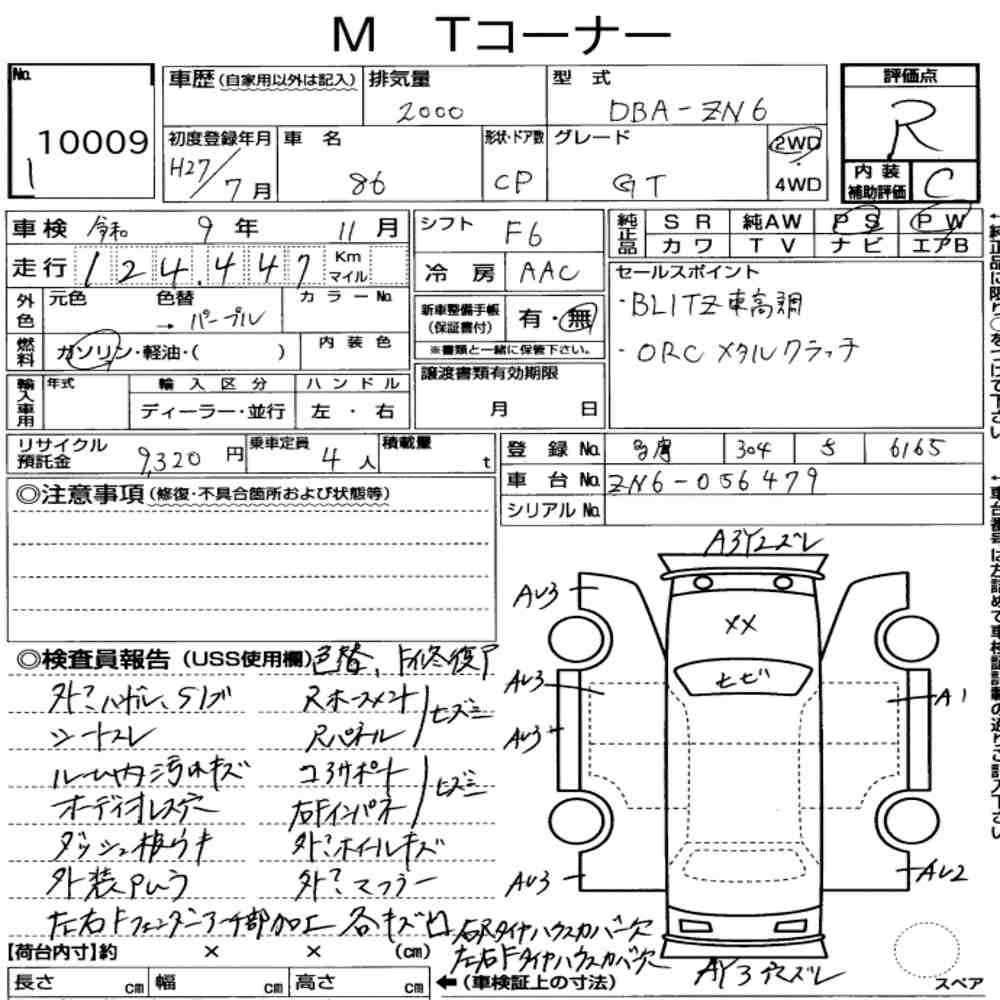 M Tコーナー
No. 10009
1
車歴 (自家用以外は記入)
排気量 2000
型式 DBA-ZN6
評価点 R
初度登録年月 H27/7月
車名 86
形状・ドア数 CP
グレード GT
2WD
4WD
内装補助評価 C
車検 令和 9年 11月
シフト F6
純正品 SR 純AW PS PW
カワ TV ナビ エアB
走行 124,447 Km マイル
冷房 AAC
外色 元色 色替 → パープル カラーNo.
新車整備手帳 (保証書付) 有・無
※書類と一緒に保管下さい。
セールスポイント
・BLITZ車高調
・ORCメタルクラッチ
燃料 ガソリン・軽油・( ) 内装色
輸入車用 年式 輸入区分 ハンドル
ディーラー・並行 左・右
譲渡書類有効期限
月 日
リサイクル預託金 9,320円 乗車定員 4人 積載量 t
登録No. 多摩 304 S 6165
車台No. ZN6-056479
シリアルNo.
◎注意事項 (修復・不具合箇所および状態等)
◎検査員報告 (USS使用欄) 色替、F修復ア
外?ハンドル、Sノブ
シートスレ
ルーム内汚れキズ
オーディオレス穴
ダッシュ板ウキ
外装Pムラ
左右Fフェンダーアーチ部加工 各キズ凹
Rホースメント
Rパネル
ヒズミ
コアサポート
右Fインパネ
ヒズミ
外?ホイールキズ
外?マフラー
右Rタイヤハウスカバー欠
左右Fタイヤハウスカバー欠
A3Y2ズレ
AU3
XX
ヒビ
AU3
A1
AU3
AU3
AU2
AY3デズレ
スペア
【荷台内寸】約 × × (cm)
長さ cm 幅 cm 高さ cm
←(車検証上の寸法)
←純正品に限り○をつけて下さい